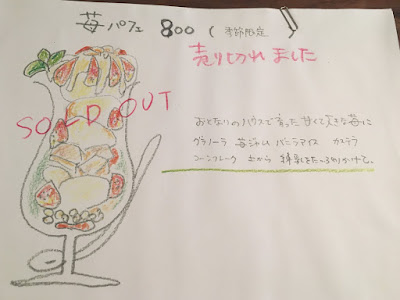 苺パフェ 800 ( 季節限定
売り切れました
SOLD OUT
おとなりのハウスで育った甘くて大きな苺に
グラノーラ 苺ジャム バニラアイス カステラ
コーンフレーク 上から 練乳をたっぷりかけて。